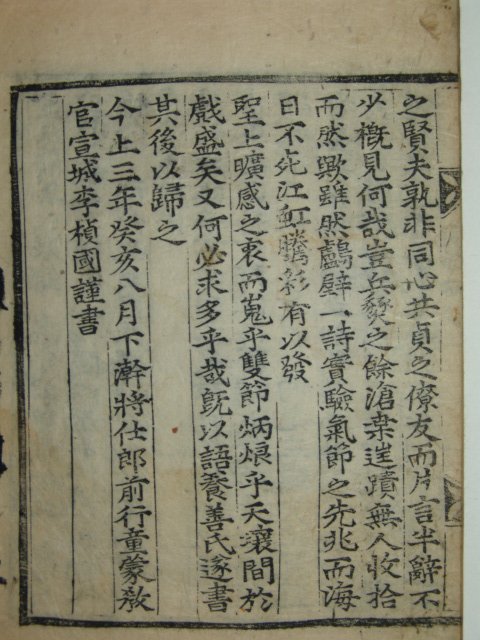 之賢夫孰非同心共貞之僚友而片言半辭不
少槪見何哉豈兵燹之餘滄桒逞蹟無人收拾
而然歟雖然鸕壁一詩實驗氣節之先兆而海
日不死江虹騰彩有以發
聖上曠感之衷而嵬乎雙節炳烺乎天壤間於
戱盛矣又何必求多乎哉旣以語養善氏遂書
其後以歸之
今上三年癸亥八月下澣將仕郞前行童蒙敎
官宣城李楨國謹書